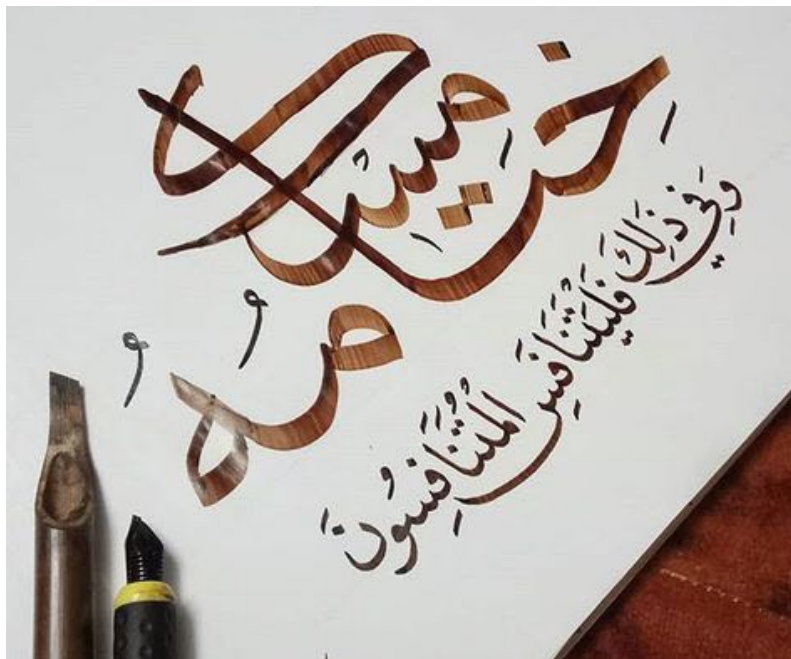 خِتَامُهُ مِسْكٌ
وَفِي ذَٰلِكَ فَلْيَتَنَافَسِ الْمُتَنَافِسُونَ